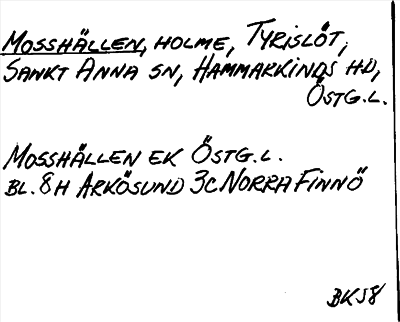 MOSSHÄLLEN, HOLME, TYRISLÖT,
SANKT ANNA SN, HAMMARKINDS HD,
ÖSTG.L.
MOSSHÄLLEN EK ÖSTG.L.
BL. 8H ARKÖSUND 3C NORRA FINNÖ
BK58